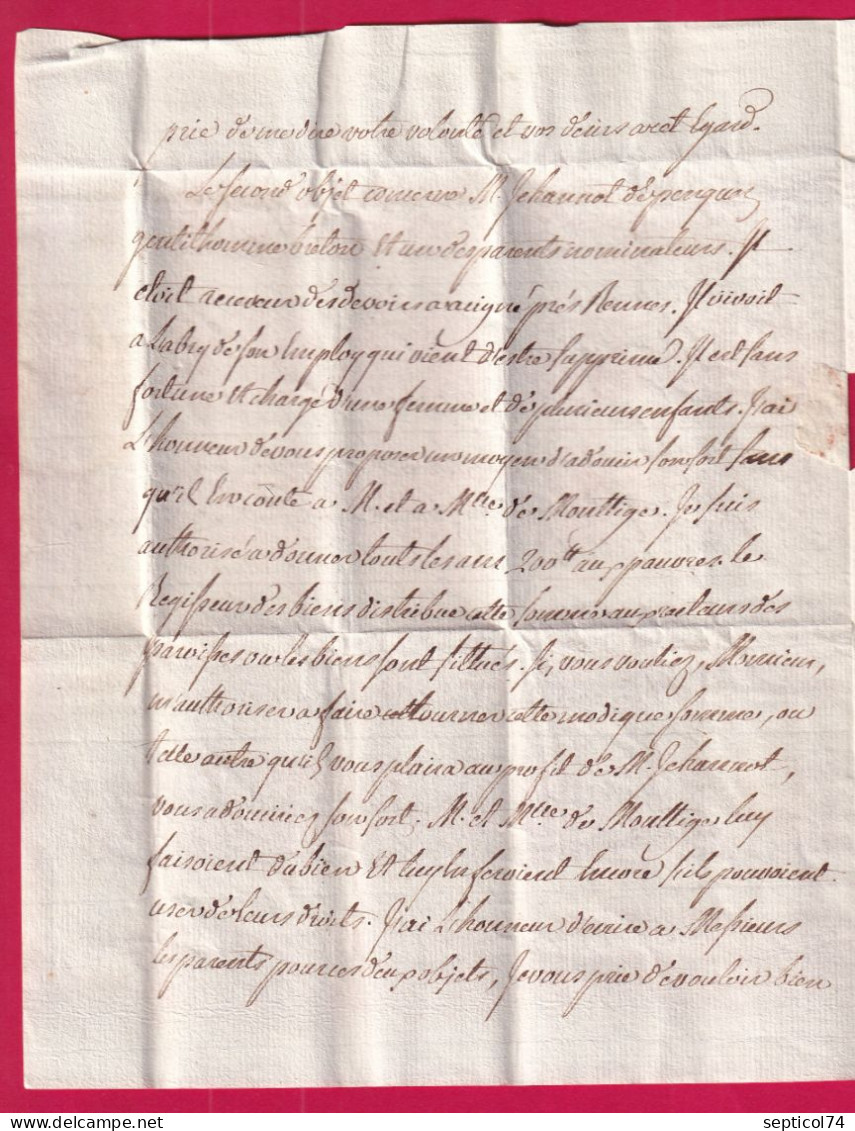 prie de me dire votre volonté et vos desirs a cet Egard.
Le second objet concerne M. Jehannot de penquer
gentilhomme breton Et un des parents nominateurs. Il
etoit a receveur des devoirs a acigné près Rennes. Il vivoit
a Labry de son Employ qui vient d'estre supprimé. Il est sans
fortune Et chargé d'une femme et de plusieurs enfants. J'ai
L'honneur de vous proposer un moyen d'adoucir son sort sans
qu'il En coûte a M. et a Mlle. de Monttige. Je suis
authorisé a donner touts les ans 200tt aux pauvres. le
Regisseur des biens distribue cette somme aux recteurs des
paroisses ou les biens sont sittués. Si, vous vouliez, Monsieur,
m'authoriser a faire tourner cette modique somme, ou
telle autre qu'il vous plaira au profit de M. Jehannot,
vous adouciriez son sort. M. et Mlle de Monttige luy
faisoient du bien Et luy En feroient Encore s'ils pouvoient
user de leurs droits. J'ai L'honneur d'ecrire a Messieurs
les parents pour ces deux objets, Je vous prie de vouloir bien
septicol74